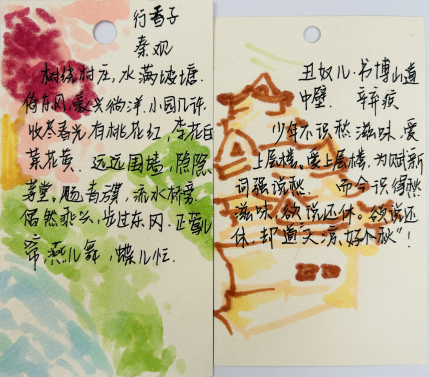 行香子
秦观
树绕村庄，水满坡塘.
倚东风，豪兴徜洋.小园几许
收尽春光.有桃花红，李花白
菜花黄. 远远围墙，隐隐
茅堂，飏青旗，流水桥旁.
偶然乘兴，步过东冈.正莺儿
啼，燕儿舞，蝶儿忙.
丑奴儿·书博山道
中壁. 辛弃疾
少年不识愁滋味，爱
上层楼，爱上层楼，为赋新
词强说愁. 而今识得愁
滋味，欲说还休，欲说还
休，却道"天凉好个秋"！